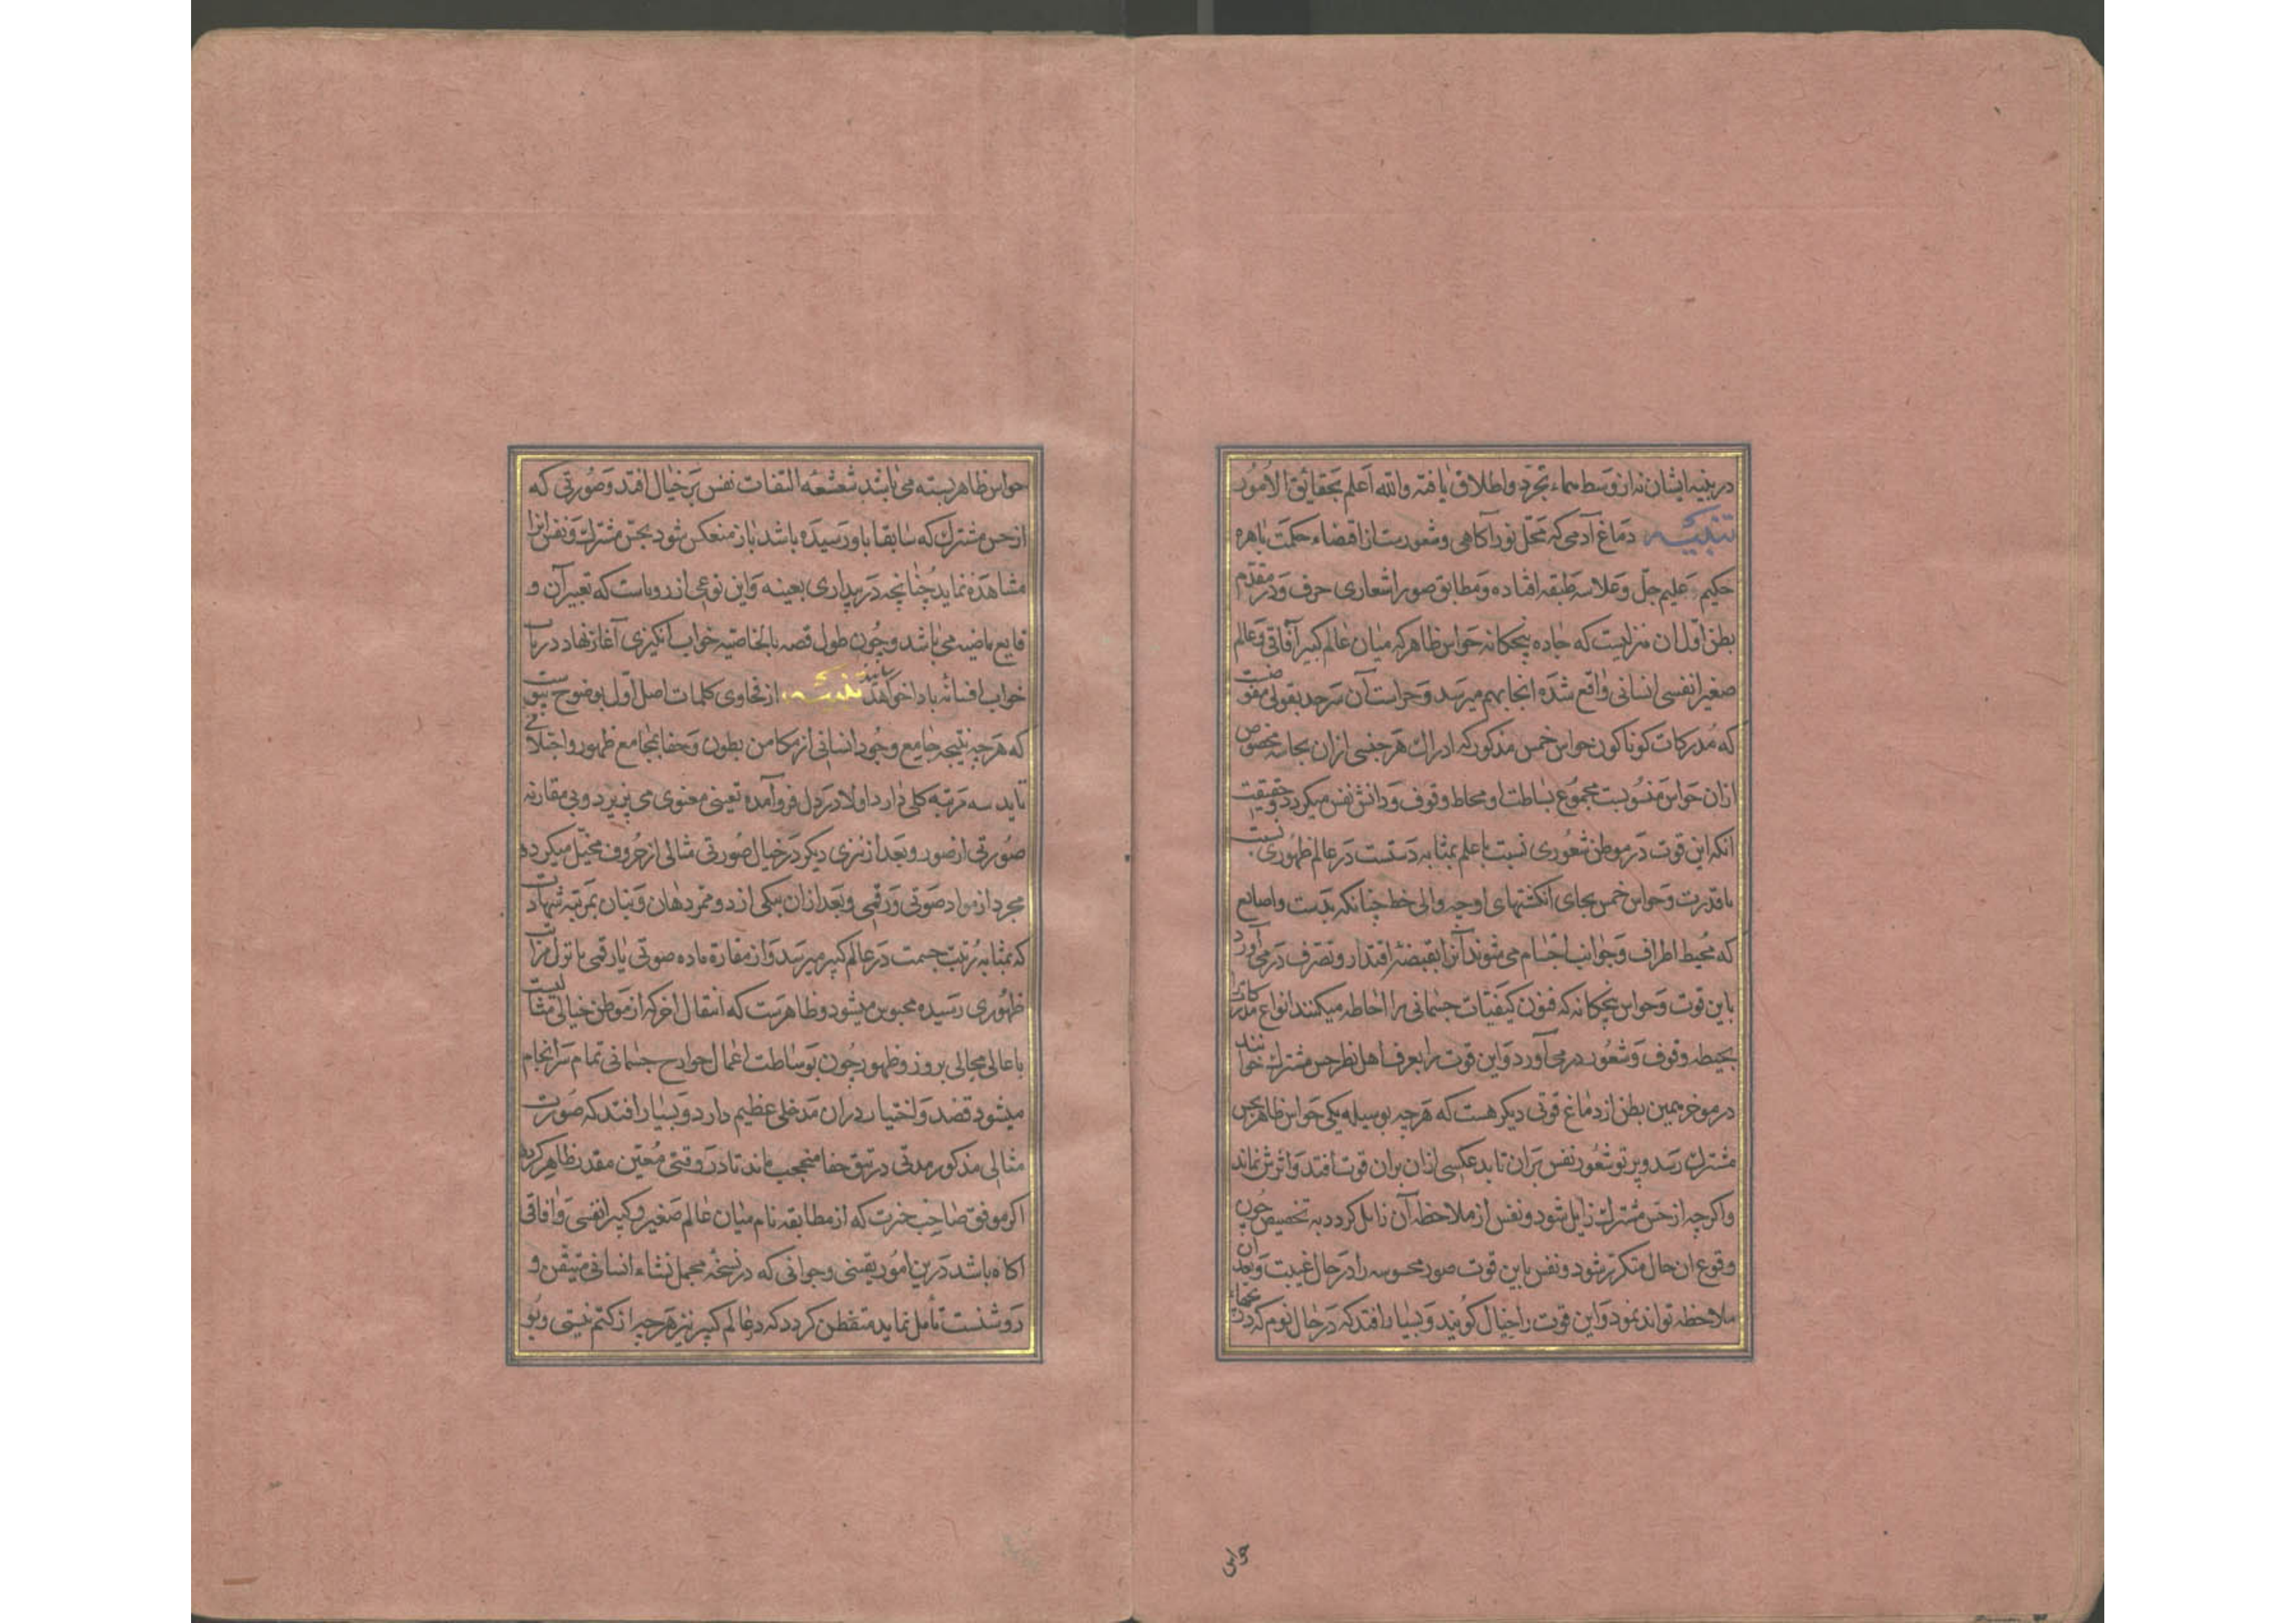 در بنیه ایشان نداز وسط سماء تجرد و اطلاق یافته والله اعلم بحقائق الامور
تنبیه دماغ آدمی که محل نور آکاهی و شعورست از اقتضاء حکمت باهره
حکیم علیم جل وعلا سه طبقه افتاده و مطابق صور اشعاری حرف و در مقدم
بطن اول ان منزلیست که جاده پنجکانه حواس ظاهر که میان عالم کبیر آفاقی و عالم
صغیر انفسی انسانی واقع شده انجا بهم میرسد و حراست آن سرحد بقوتی مفوضست
که مدرکات کوناکون حواس خمس مذکور که ادراک هر جنسی ازان بحاسه مخصوص
ازان حواس منسوبست مجموع بساطت او محاط وقوف و دانش نفس میکردد و حقیقت
انکه این قوت در موطن شعوری نسبت با علم بمثابه دستست در عالم ظهوری نسبت
با قدرت و حواس خمس بجای انکشتهای او چه والی خط چنانکه بدست و اصابع
که محیط اطراف و جوانب اجسام می شوند آنرا بقبضه اقتدار و تصرف در می آورد
باین قوت و حواس پنجکانه که فنون کیفیات جسمانی را احاطه میکنند انواع مدرکات را
بحیطه وقوف و شعور در می آورد و این قوت را بعرف اهل نظر حس مشترک خوانند
در موخر همین بطن از دماغ قوتی دیکر هست که هر چه بوسیله یکی حواس ظاهر بحس
مشترک رسد و پرتو شعور نفس بران تابد عکسی ازان بران قوت افتد و اثرش نماند
و اکرچه از حس مشترک زایل شود و نفس از ملاحظه آن زایل کردد به تخصیص چون
وقوع ان حال متکرر شود و نفس باین قوت صور محسوسه را در حال غیبت و بعد ان
ملاحظه تواند نمود و این قوت را خیال کویند و بسیار افتد که در حال نوم که
حواس
حواس ظاهر بسته می باشد شعشعه التفات نفس بر خیال افتد و صورتی که
از حس مشترک که سابقا باو رسیده باشد باز منعکس شود بحس مشترک و نفس انرا
مشاهده نماید چنانچه در بیداری بعینه و این نوعی از رویاست که تعبیر آن و
قایع ماضیه می باشد و چون طول قصه بالخاصیه خواب انکیزی آغاز نهاد در باب
خواب افسانه باد اخواهند تنبیه از فحاوی کلمات اصل اول بوضوح پیوست
که هر چه نتیجه جامع وجود انسانی از مکامن بطون و خفا بمجامع ظهور و اجتلا می
تابد سه مرتبه کلی دارد اولا در دل فروآمده تعینی معنوی می پذیرد و بی مقارنه
صورتی از صور و بعد از نزی دیکر در خیال صورتی مثالی از حروف مخیل میکردد
مجرد از مواد صوتی و رقمی و بعد ازان بیکی از دو ممر دهان و بنان بمرتبه شهادت
که بمثابه رتبت جسمت در عالم کبیر میرسد و از مقارنه ماده صوتی یا رقمی با نزل مراتب
ظهوری رسیده محبوس میشود و ظاهرست که انتقال اخر که از موطن خیالی مثالیست
با عالی مجالی بروز و ظهور چون بوساطت اعمال جوارح جسمانی تمام سرانجام
میشود قصد و اختیار دران مدخلی عظیم دارد و بسیار افتد که صورت
مثالی مذکور مدتی در تتق خفا محتجب ماند تا در وقتی معین مقدر ظاهر کردد
اکر موفق صاحب خبرت که از مطابقه نام میان عالم صغیر و کبیر انفسی و افاقی
اکاه باشد درین امور یقینی وجدانی که در نسخه مجمل نشاء انسانی متیقن و
روشنست تامل نماید متفطن کردد که در عالم کبیر نیز هر چه از کتم نیستی و بو